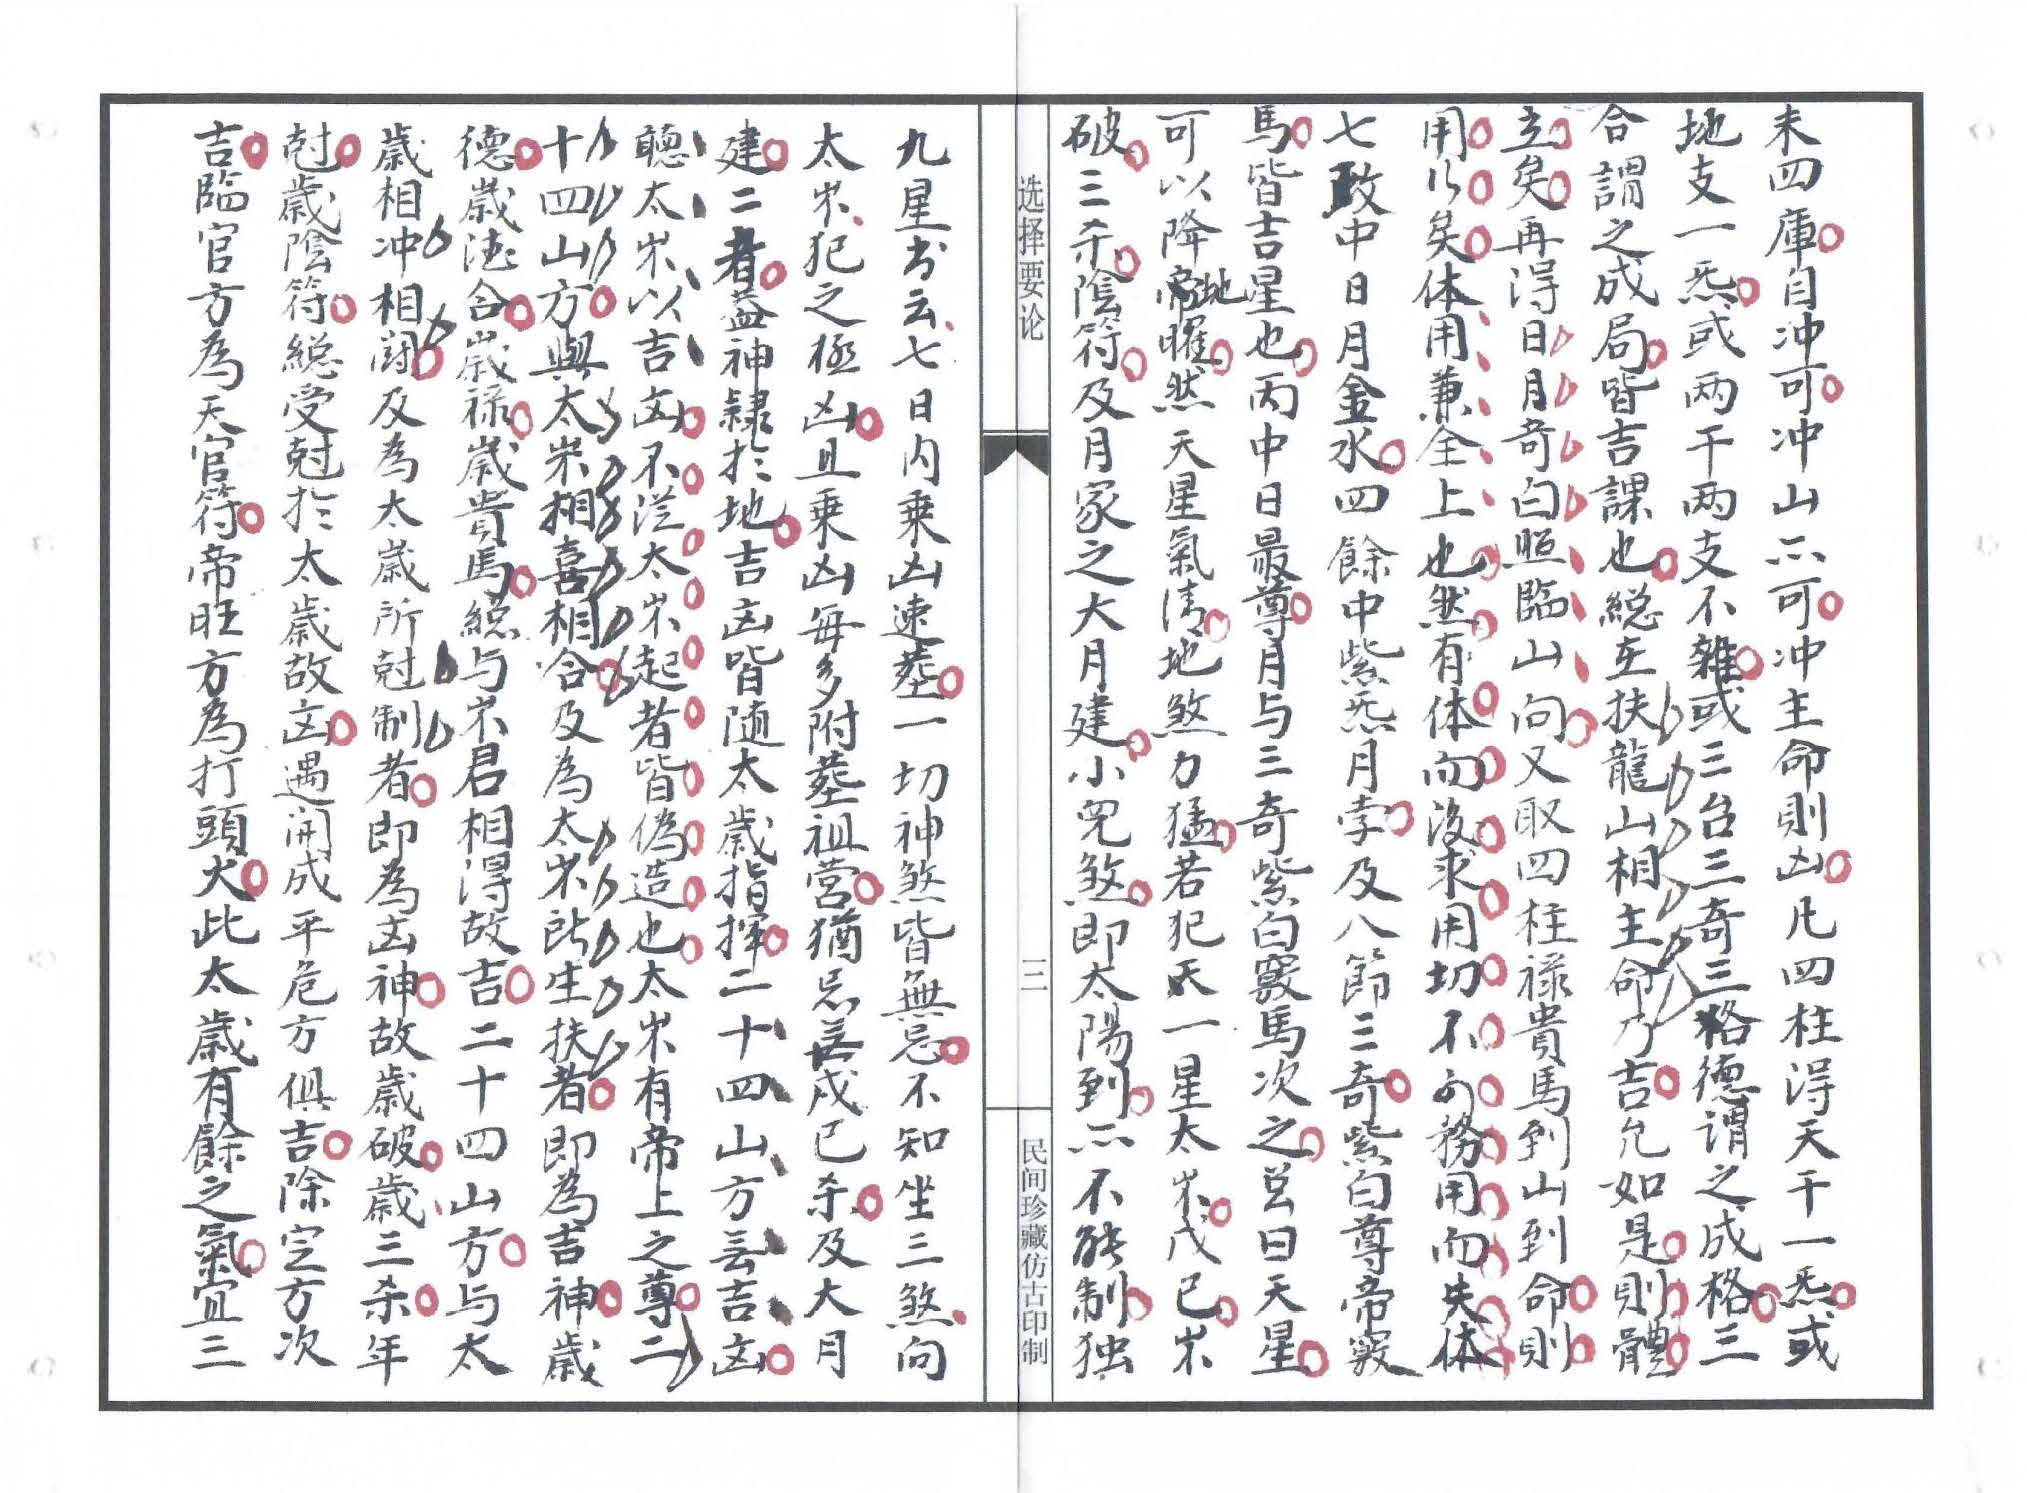 未四庫自冲可冲山亦可冲主命則凶凡四柱得天干一炁或
地支一炁或两干两支不雜或三台三奇三格德謂之成格三
合謂之成局皆吉課也総在扶龍山相主命乃吉允如是則體
立矣再得日月奇白照臨山向又取四柱禄貴馬到山到命則
用行矣体用兼全上也然有体而後求用切不可務用而失体
七政中日月金水四餘中紫炁月孛及八節三奇紫白尊帝竅
馬皆吉星也丙中日最尊月与三奇紫白竅馬次之总曰天星
可以降帝地曜然天星氣清地煞力猛若犯天一星太岁戊己岁
破三杀陰符及月家之大月建小児煞即太陽到亦不能制独
选择要论
三
民间珍藏仿古印制
九星书云七日内乗凶速塟一切神煞皆無忌不知坐三煞向
太岁犯之極凶且乗凶每多附塟祖营猶忌戊己杀及大月
建二者葢神隷扵地吉凶皆随太歲指揮二十四山方吉凶
聽太岁以吉凶不從太岁起者皆偽造也太岁有帝上之尊二
十四山方與太岁相喜相合及為太岁所生扶者即為吉神歲
德歲德合歲禄歲貴馬総与岁君相得故吉二十四山方与太
歲相冲相闘及為太歲所尅制者即為凶神故歲破歲三杀年
尅歲陰符総受尅扵太歲故凶遇開成平危方俱吉除定方次
吉臨官方為天官符帝旺方為打頭火此太歲有餘之氣宜三